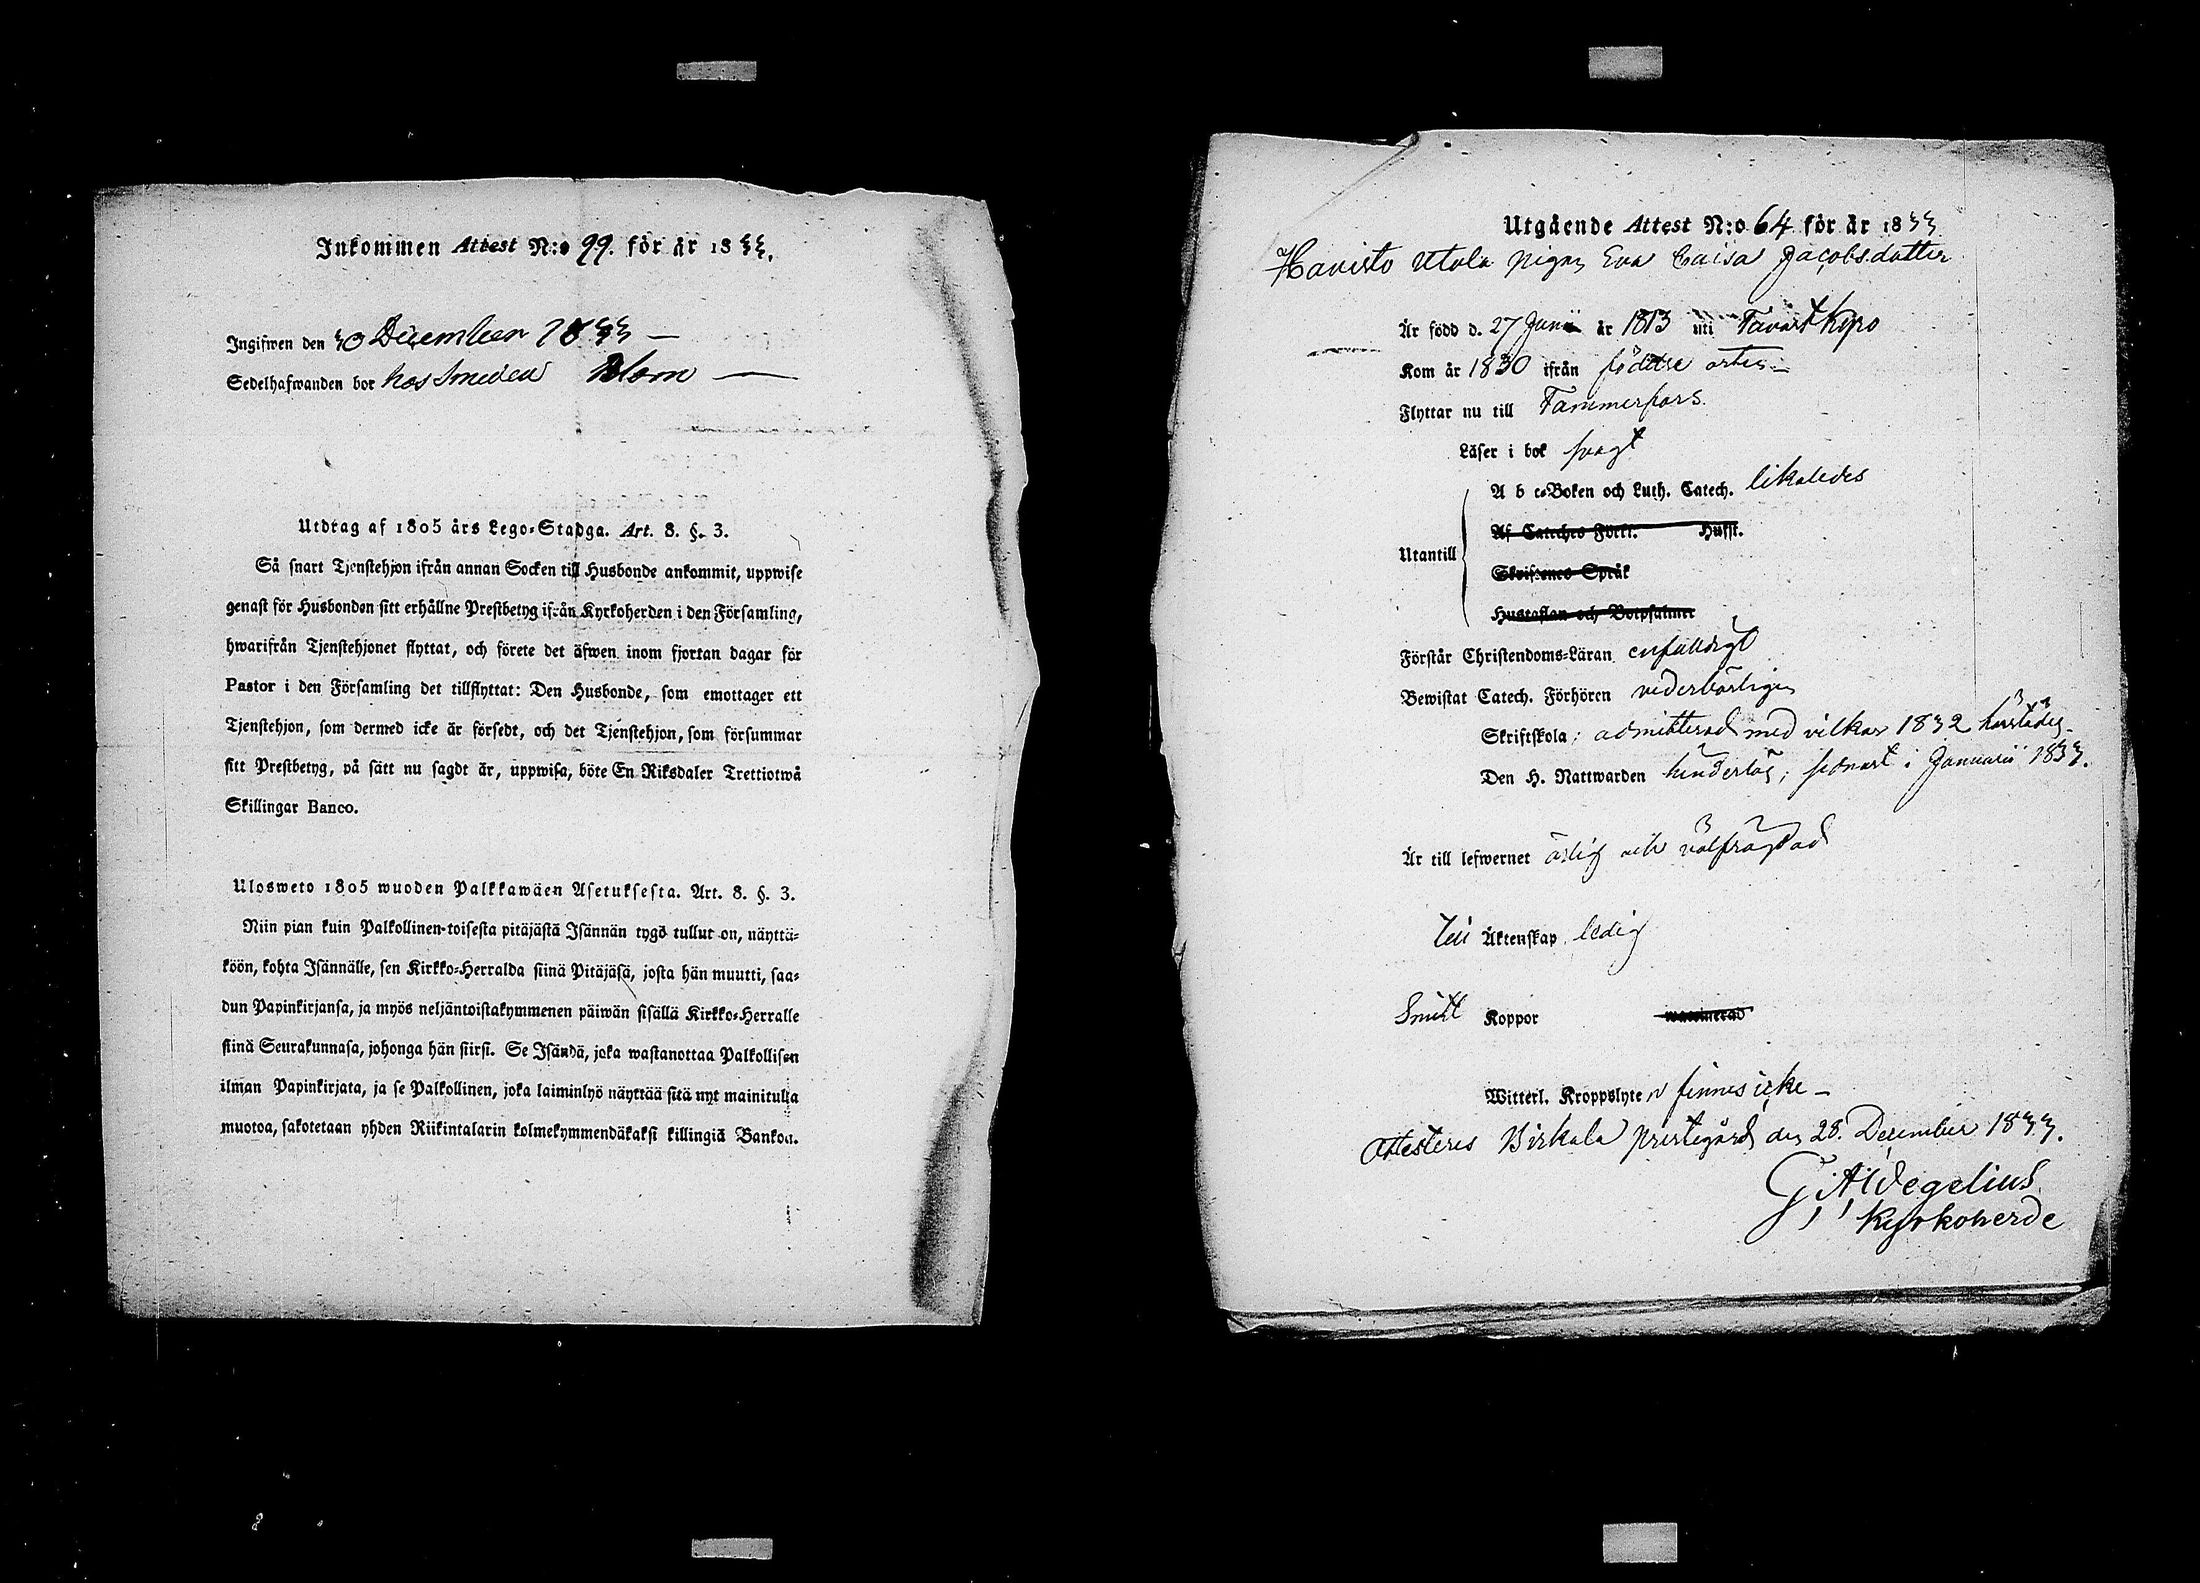 Inkommen Attest N:o 99. för år 1833.
Ingifwen den 30 December 1833 —
Sedelhafwanden bor hos Smeden Blom —
Utdrag af 1805 års Lego-Stadga. Art. 8. §. 3.
Så snart Tjenstehjon ifrån annan Socken till Husbonde ankommit, uppwise
genast för Husbonden sitt erhållne Prestbetyg ifrån Kyrkoherden i den Församling,
hwarifrån Tjenstehjonet flyttat, och förete det äfwen inom fjortan dagar för
Pastor i den Församling det tillflyttat: Den Husbonde, som emottager ett
Tjenstehjon, som dermed icke är försedt, och det Tjenstehjon, som försummar
sitt Prestbetyg, på sätt nu sagdt är, uppwisa, böte En Riksdaler Trettiotwå
Skillingar Banco.
Ulosweto 1805 wuoden Palkkawäen Asetuksesta. Art. 8. §. 3.
Niin pian kuin Palkollinen toisesta pitäjästä Isännän tygö tullut on, näyttä-
köön, kohta Isännälle, sen Kirkko-Herralda siinä Pitäjäsä, josta hän muutti, saa-
dun Papinkirjansa, ja myös neljäntoistakymmenen päiwän sisällä Kirkko-Herralle
siinä Seurakunnasa, johonga hän siirsi. Se Isändä, joka wastanottaa Palkollisen
ilman Papinkirjata, ja se Palkollinen, joka laiminlyö näyttää sitä nyt mainitulla
muotoa, sakotetaan yhden Riikintalarin kolmekymmendäkaksi killingiä Bankou.
Utgående Attest N:o 64 för år 1833
Havisto Utola pigan Eva Caisa Jacobsdotter
Är född d. 27 Junii år 1813 uti Tavast Kyro
Kom år 1830 ifrån födelse orten —
Flyttar nu till Tammerfors.
Läser i bok svagt
A b c-Boken och Luth. Catech. likaledes
Af Catechis Förkl. Husst.
Utantill
Skriftenes Språk
Hustaflan och Botpsalmer
Förstår Christendoms-Läran enfaldigt
Bewistat Catech. Förhören vederbörligen
Skriftskola; admitterad med vilkor 1832 härstädes
Den H. Nattwarden hinderlös; sednast i Januarii 1833.
Är till lefwernet ärlig och välfrägdad
Till Äktenskap ledig
Koppor
Witterl. Kroppslyten finnes icke —
Attesteres Birkala prestegård den 28. December 1833.
G. Aldegelius
Kyrkoherde